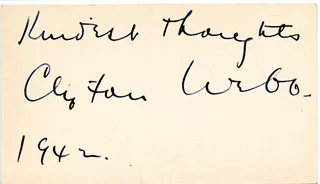 Kindest Thoughts
Clifton Webb.
1942.